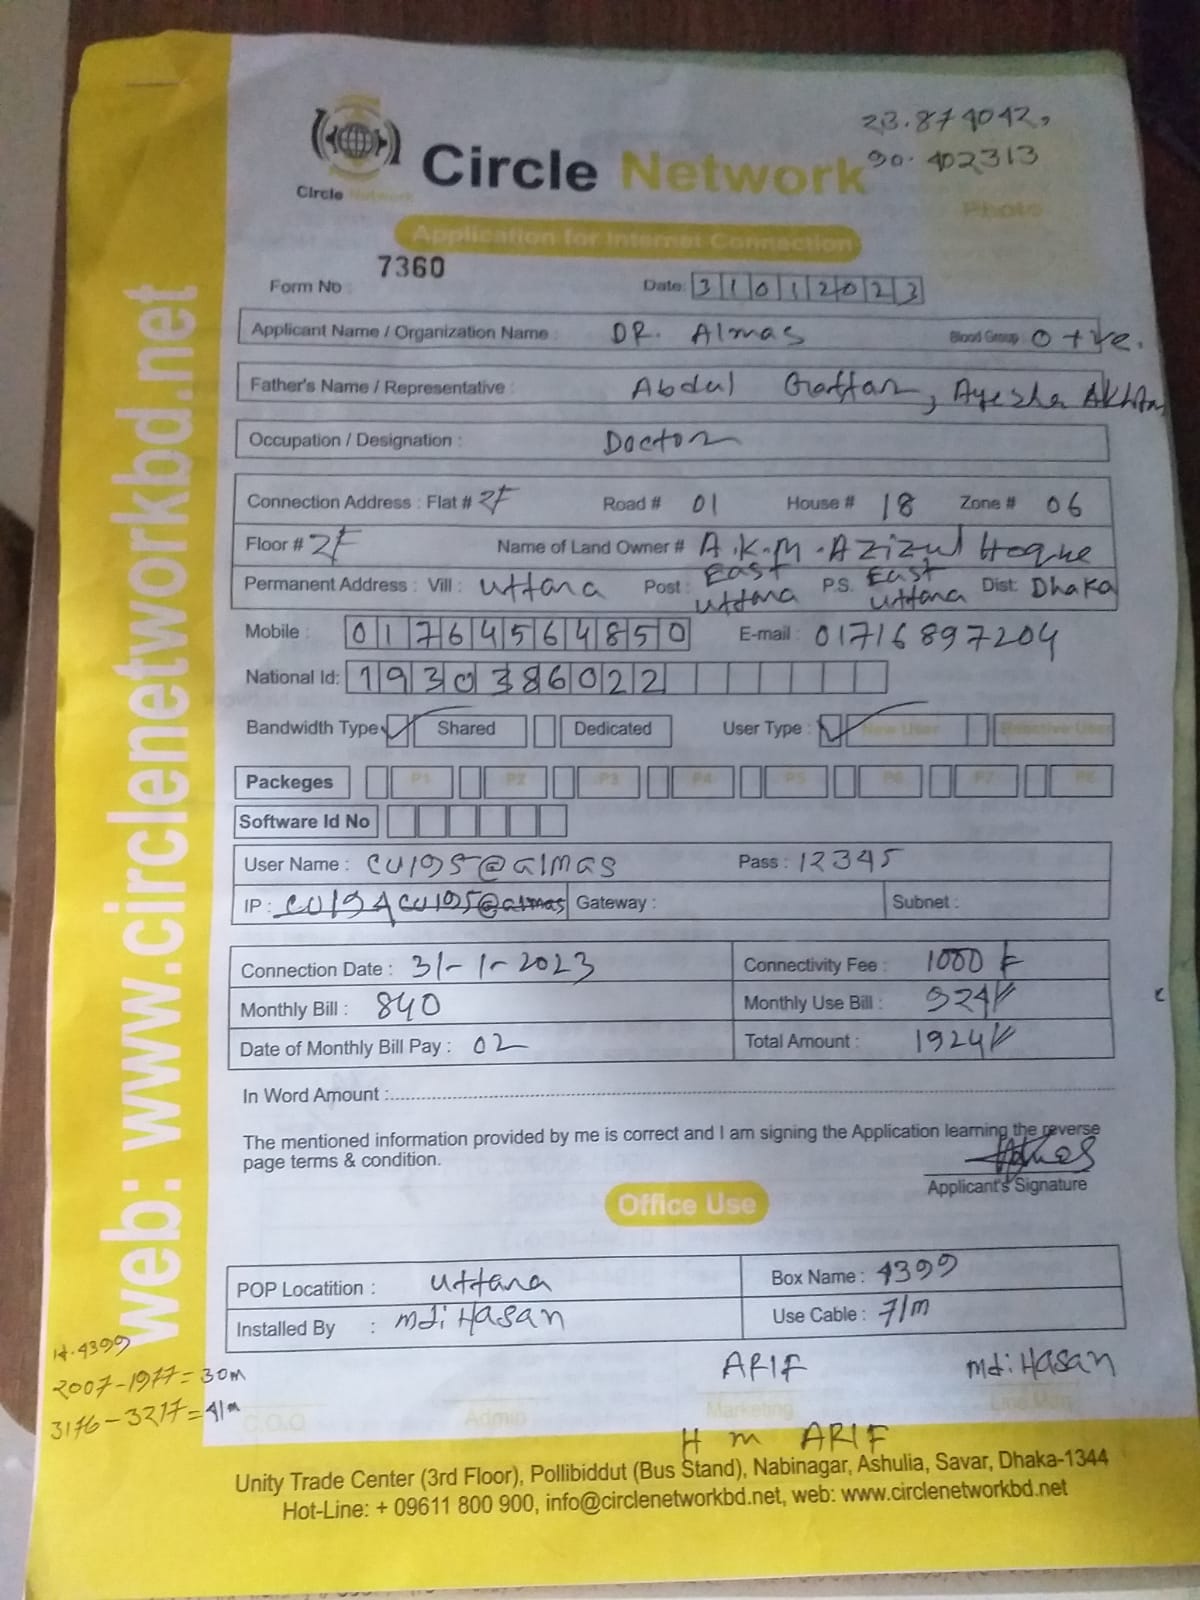 23.874042,
90.402313
Circle Network
Circle Network
Photo
Application for Internet Connection
Form No : 7360 Date: 31012023
Applicant Name / Organization Name : DR. Almas Blood Group O +ve.
Father's Name / Representative : Abdul Gaffar, Ayesha Akhtar
Occupation / Designation : Doctor
Connection Address : Flat # 2F Road # 01 House # 18 Zone # 06
Floor # 2F Name of Land Owner # A.K.M. Azizul Hoque
Permanent Address : Vill : Uttara Post : East Uttara P.S. East Uttara Dist: Dhaka
Mobile : 01764564850 E-mail : 01716897204
National Id: 1930386022
Bandwidth Type Shared Dedicated User Type : New User Reactive User
Packeges P1 P2 P3 P4 P5 P6 P7 P8
Software Id No
User Name : CU195@almas Pass : 12345
IP : CU195@almas Gateway : Subnet :
Connection Date : 31-1-2023 Connectivity Fee : 1000
Monthly Bill : 840 Monthly Use Bill : 924
Date of Monthly Bill Pay : 02 Total Amount : 1924
In Word Amount :
The mentioned information provided by me is correct and I am signing the Application learning the reverse
page terms & condition.
Almas
Applicant's Signature
Office Use
POP Locatition : Uttara Box Name : 4399
Installed By : Md: Hasan Use Cable : 71m
H.4399
2007-1977=30m
3176-3217=41m
ARIF Md: Hasan
C.O.O Admin Marketing Line Man
H m ARIF
Unity Trade Center (3rd Floor), Pollibiddut (Bus Stand), Nabinagar, Ashulia, Savar, Dhaka-1344
Hot-Line: + 09611 800 900, info@circlenetworkbd.net, web: www.circlenetworkbd.net
web: www.circlenetworkbd.net